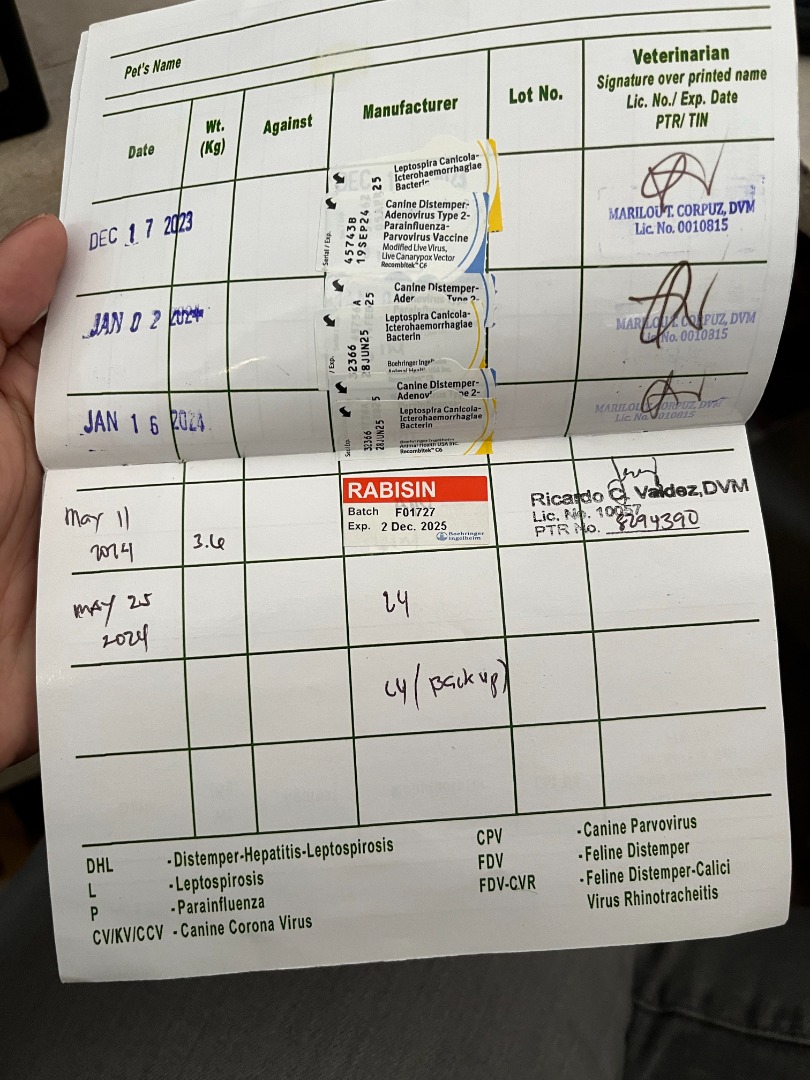 Pet's Name
Date
Wt.
(Kg)
Against
Manufacturer
Lot No.
Veterinarian
Signature over printed name
Lic. No./ Exp. Date
PTR/ TIN
DEC 17 2023
Leptospira Canicola-
Icterohaemorrhagiae
Bacterin
25
Canine Distemper-
Adenovirus Type 2-
Parainfluenza-
Parvovirus Vaccine
Modified Live Virus,
Live Canarypox Vector
Recombitek® C6
Serial / Exp.
45743B
19SEP24
MARILOU T. CORPUZ, DVM
Lic. No. 0010815
JAN 02 2024
Canine Distemper-
Type 2-
A
25
Leptospira Canicola-
Icterohaemorrhagiae
Bacterin
/ Exp.
32366
28JUN25
MARILOU T. CORPUZ, DVM
Lic. No. 0010815
JAN 16 2024
Canine Distemper-
Leptospira Canicola-
Icterohaemorrhagiae
Bacterin
Animal Health USA Inc.
Recombitek® C6
32366
28JUN25
MARILOU T. CORPUZ, DVM
Lic. No. 0010815
May 11
2024
3.6
RABISIN
Batch F01727
Exp. 2 Dec. 2025
Boehringer
Ingelheim
Ricardo C. Valdez, DVM
Lic. No. 10057
PTR No. 8294390
MAY 25
2024
L4
L4 (Backup)
DHL - Distemper-Hepatitis-Leptospirosis
L - Leptospirosis
P - Parainfluenza
CV/KV/CCV - Canine Corona Virus
CPV - Canine Parvovirus
FDV - Feline Distemper
FDV-CVR - Feline Distemper-Calici
Virus Rhinotracheitis